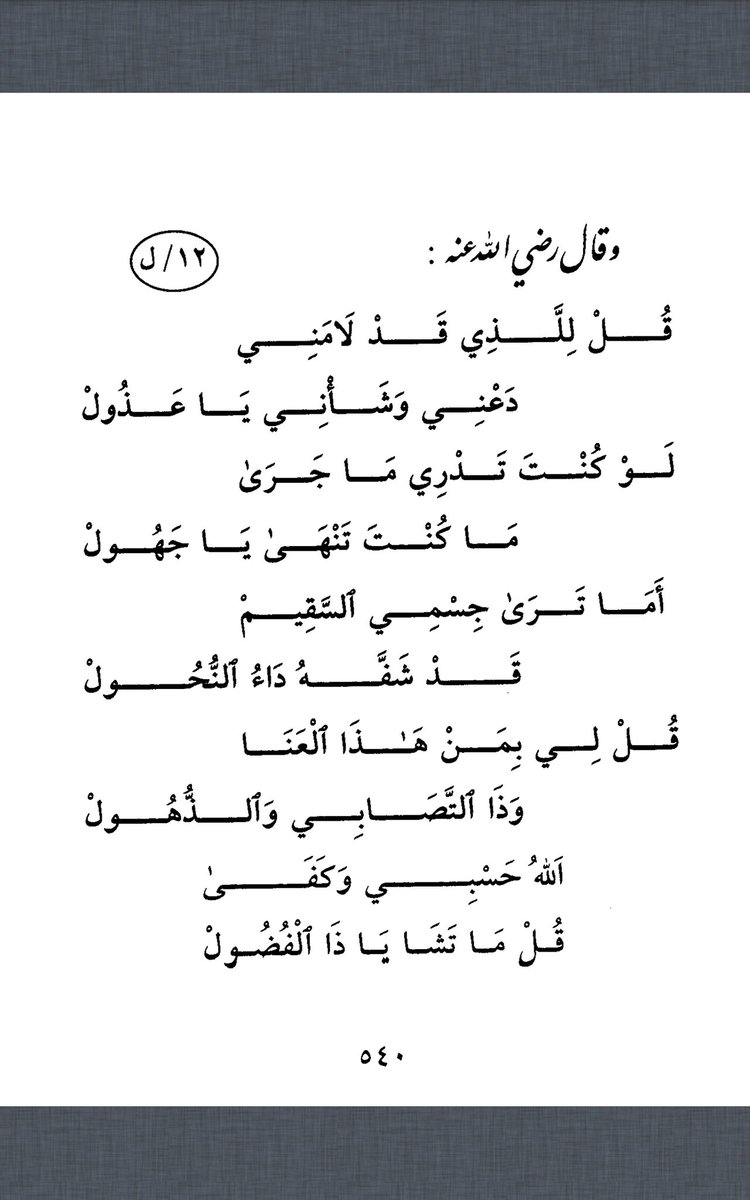 وقال رضي الله عنه : ١٢/ل
قُلْ لِلَّذِي قَدْ لَامَنِي
دَعْنِي وَشَأْنِي يَا عَذُولْ
لَوْ كُنْتَ تَدْرِي مَا جَرَىٰ
مَا كُنْتَ تَنْهَىٰ يَا جَهُولْ
أَمَا تَرَىٰ جِسْمِي ٱلسَّقِيمْ
قَدْ شَفَّهُ دَاءُ ٱلنُّحُولْ
قُلْ لِي بِمَنْ هَٰذَا ٱلْعَنَا
وَذَا ٱلتَّصَابِي وَٱلذُّهُولْ
اَللهُ حَسْبِي وَكَفَىٰ
قُلْ مَا تَشَا يَا ذَا ٱلْفُضُولْ
٥٤٠